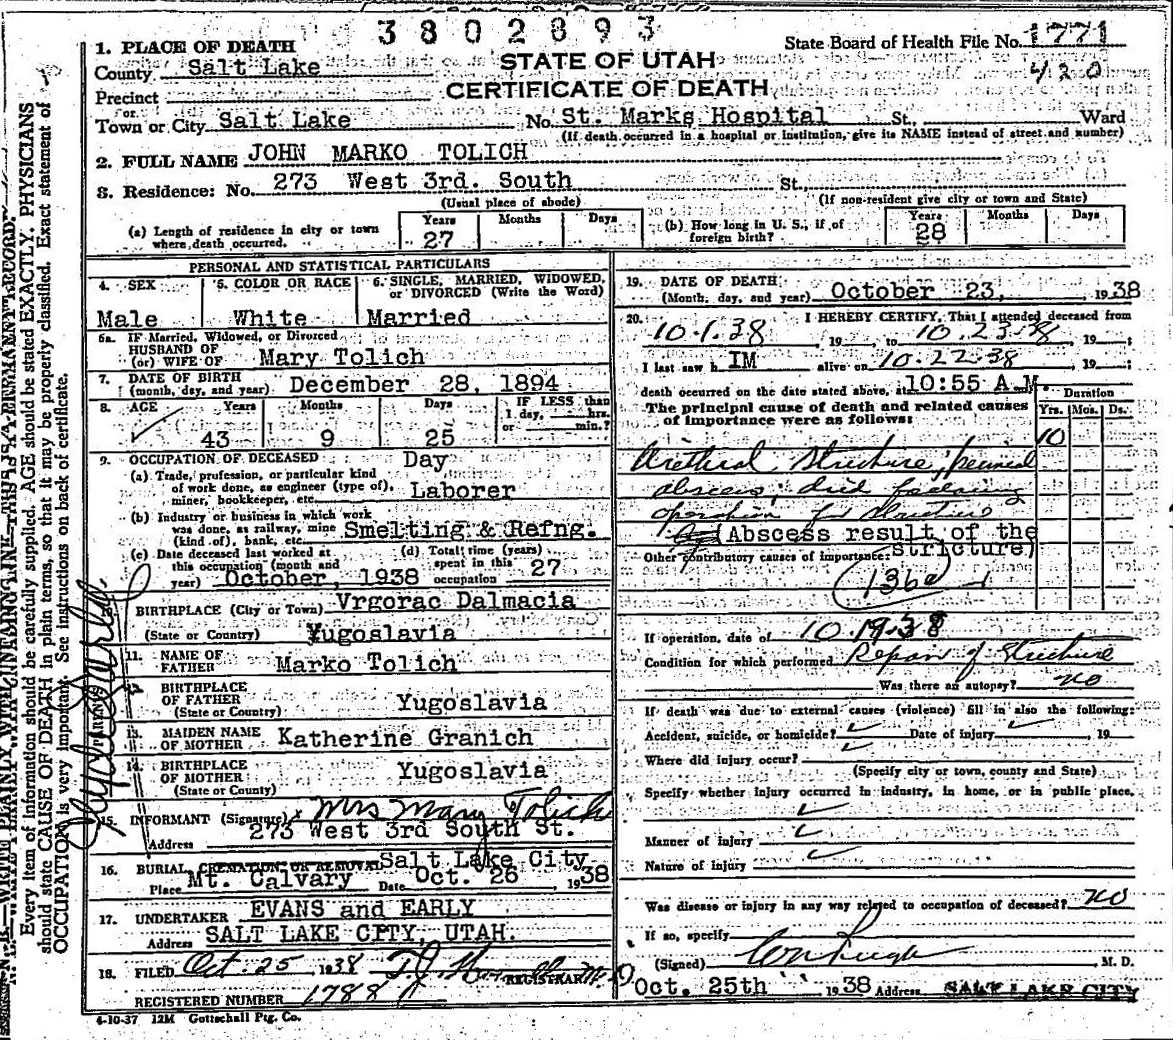 3802893
1. PLACE OF DEATH
State Board of Health File No. 1771
County Salt Lake
STATE OF UTAH
420
Precinct
CERTIFICATE OF DEATH
or
Town or City Salt Lake No. St. Marks Hospital St., Ward
(If death occurred in a hospital or institution, give its NAME instead of street and number)
2. FULL NAME JOHN MARKO TOLICH
3. Residence: No. 273 West 3rd. South St.,
(Usual place of abode) (If non-resident give city or town and State)
(a) Length of residence in city or town where death occurred. Years 27 Months Days
(b) How long in U. S., if of foreign birth? Years 28 Months Days
PERSONAL AND STATISTICAL PARTICULARS
4. SEX 5. COLOR OR RACE 6. SINGLE, MARRIED, WIDOWED, or DIVORCED (Write the Word)
Male White Married
6a. IF Married, Widowed, or Divorced
HUSBAND OF
(or) WIFE OF Mary Tolich
7. DATE OF BIRTH
(month, day, and year) December 28, 1894
8. AGE Years Months Days IF LESS than
1 day, hrs.
or min.?
43 9 25
9. OCCUPATION OF DECEASED Day
(a) Trade, profession, or particular kind
of work done, as engineer (type of),
miner, bookkeeper, etc. Laborer
(b) Industry or business in which work
was done, as railway, mine
(kind of), bank, etc. Smelting & Refng.
(c) Date deceased last worked at
this occupation (month and
year) October, 1938
(d) Total time (years)
spent in this
occupation 27
10. BIRTHPLACE (City or Town) Vrgorac Dalmacia
(State or Country) Yugoslavia
11. NAME OF
FATHER Marko Tolich
12. BIRTHPLACE
OF FATHER Yugoslavia
(State or Country)
13. MAIDEN NAME
OF MOTHER Katherine Granich
14. BIRTHPLACE
OF MOTHER Yugoslavia
(State or Country)
PARENTS
15. INFORMANT (Signature) x Mrs Mary Tolich
273 West 3rd South St.
Address
16. BURIAL CREMATION OR REMOVAL Salt Lake City
Place Mt. Calvary Date Oct. 26 1938
17. UNDERTAKER EVANS and EARLY
Address SALT LAKE CITY, UTAH.
18. FILED Oct. 25 1938 REGISTRAR
REGISTERED NUMBER 1788
4-10-37 12M Gottschall Ptg. Co.
19. DATE OF DEATH
(Month, day, and year) October 23, 1938
20. I HEREBY CERTIFY, That I attended deceased from
10.1.38 19 , to 10.23.38 , 19 ;
I last saw h IM alive on 10.22.38 , 19 ;
death occurred on the date stated above, at 10:55 A.M.
The principal cause of death and related causes
of importance were as follows:
Duration
Yrs. Mos. Ds.
10
Urethral Stricture, perineal
abscess; died following
operation for stricture
(Abscess result of the
stricture)
Other contributory causes of importance:
136a
If operation, date of 10.19.38
Condition for which performed Repair of Stricture
Was there an autopsy? no
If death was due to external causes (violence) fill in also the following:
Accident, suicide, or homicide? Date of injury , 19
Where did injury occur?
(Specify city or town, county and State)
Specify whether injury occurred in industry, in home, or in public place.
Manner of injury
Nature of injury
Was disease or injury in any way related to occupation of deceased? no
If so, specify
(Signed) , M. D.
Oct. 25th 1938 Address SALT LAKE CITY
N. B.—WRITE PLAINLY WITH UNFADING INK—THIS IS A PERMANENT RECORD.
Every item of information should be carefully supplied. AGE should be stated EXACTLY. PHYSICIANS
should state CAUSE OF DEATH in plain terms, so that it may be properly classified. Exact statement of
OCCUPATION is very important. See instructions on back of certificate.